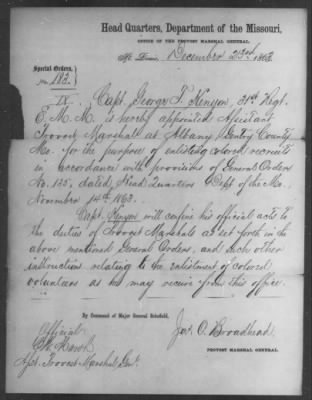 Head Quarters, Department of the Missouri,
OFFICE OF THE PROVOST MARSHAL GENERAL.
St. Louis, December 23rd 1863
Special Orders,
No. 182.
IX. Capt. George T. Kenyon, 31st Regt.
E. M. M. is hereby appointed Assistant
Provost Marshall at Albany Gentry County
Mo. for the purpose of enlisting colored recruits
in accordance with provisions of General Orders
No. 135, dated Head Quarters Dept of the Mo.
November 14th 1863.
Capt. Kenyon will confine his official acts to
the duties of Provost Marshals as set forth in the
above mentioned General Orders, and such other
instructions relating to the enlistment of colored
volunteers as he may receive from this office.
By Command of Major General Schofield.
Jas. O. Broadhead
PROVOST MARSHAL GENERAL.
Official
Asst. Provost Marshal Genl.